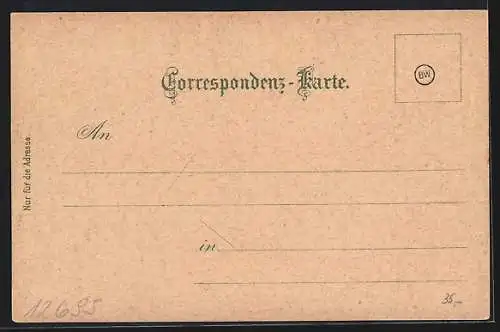 Correspondenz-Karte.
BW
An
Nur für die Adresse.
in
12695
35,-